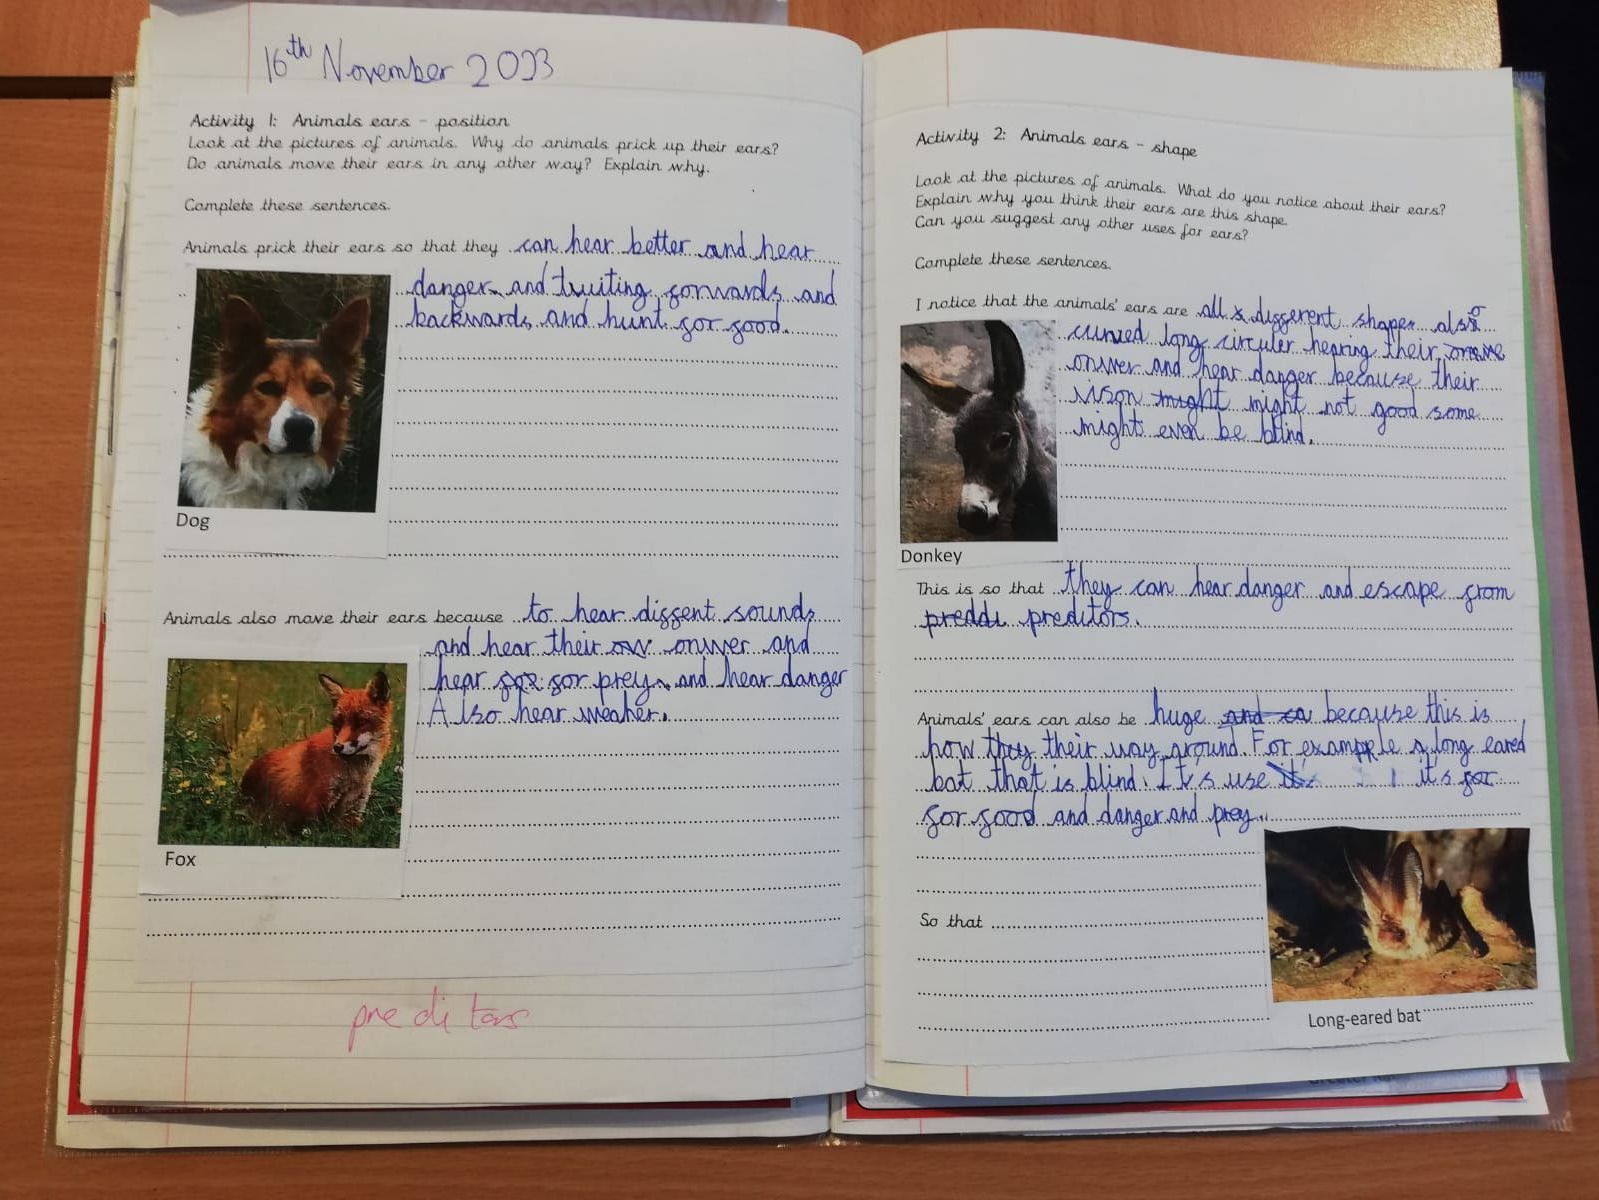 16th November 2023
Activity 1: Animals ears - position
Look at the pictures of animals. Why do animals prick up their ears?
Do animals move their ears in any other way? Explain why.
Complete these sentences.
Animals prick their ears so that they can hear better and hear
danger and twiting forwards and
backwards and hunt for food.
Dog
Animals also move their ears because to hear diffent sounds
and hear their onwer and
hear for prey and hear danger
Also hear weaher.
Fox
preditors
Activity 2: Animals ears - shape
Look at the pictures of animals. What do you notice about their ears?
Explain why you think their ears are this shape.
Can you suggest any other uses for ears?
Complete these sentences.
I notice that the animals' ears are all different shapes also
curved long circuler hearing their
onwer and hear danger because their
vison might might not good some
might even be blind.
Donkey
This is so that they can hear danger and escape from
preddi preditors.
Animals' ears can also be huge and ca because this is
how they their way ground. For example a long eared
bat that is blind. It's use it's it's for
for food and danger and prey.
So that
Long-eared bat